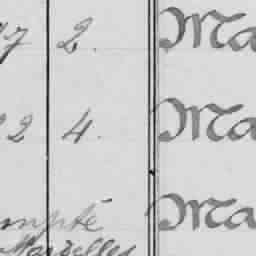 7 2. Ma
2 4. Ma
mpté Ma
Marselles